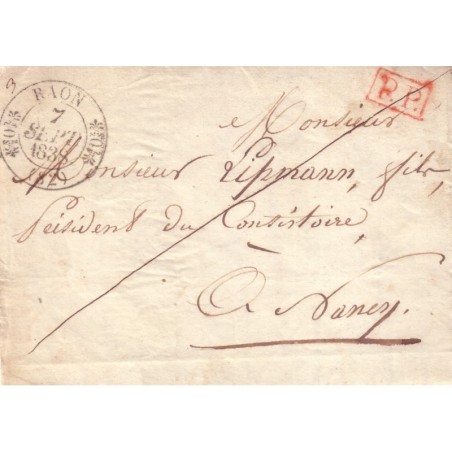 RAON
7
SEPT
183
(82)
P.P.
Monsieur
Monsieur Lipmann, fils,
Président du Consistoire,
A Nancy.